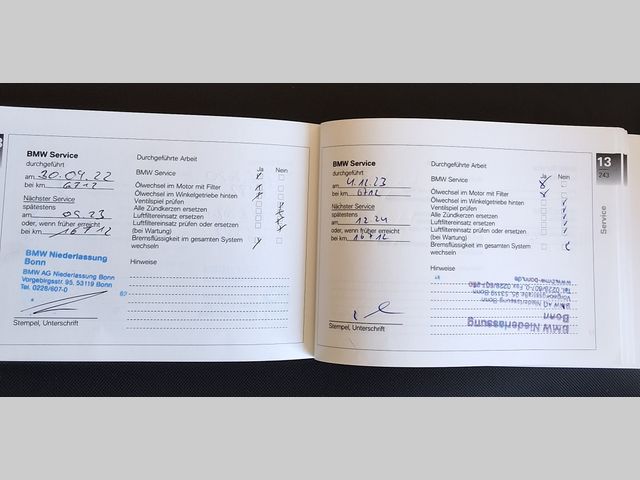 BMW Service
durchgeführt
am 30.09.22
bei km 6712
Nächster Service
spätestens
am 09.23
oder, wenn früher erreicht
bei km 16712
BMW Niederlassung
Bonn
BMW AG Niederlassung Bonn
Vorgebirgsstr. 95, 53119 Bonn
Tel. 0228/607-0
Stempel, Unterschrift
Durchgeführte Arbeit
Ja Nein
BMW Service
Ölwechsel im Motor mit Filter
Ölwechsel im Winkelgetriebe hinten
Ventilspiel prüfen
Alle Zündkerzen ersetzen
Luftfiltereinsatz ersetzen
Luftfiltereinsatz prüfen oder ersetzen
(bei Wartung)
Bremsflüssigkeit im gesamten System
wechseln
Hinweise
BMW Service
durchgeführt
am 4.12.23
bei km 6712
Nächster Service
spätestens
am 12.24
oder, wenn früher erreicht
bei km 16712
Stempel, Unterschrift
Durchgeführte Arbeit
Ja Nein
BMW Service
Ölwechsel im Motor mit Filter
Ölwechsel im Winkelgetriebe hinten
Ventilspiel prüfen
Alle Zündkerzen ersetzen
Luftfiltereinsatz ersetzen
Luftfiltereinsatz prüfen oder ersetzen
(bei Wartung)
Bremsflüssigkeit im gesamten System
wechseln
Hinweise
BMW Niederlassung
Bonn
BMW AG Niederlassung Bonn
Vorgebirgsstr. 95, 53119 Bonn
13
243
Service